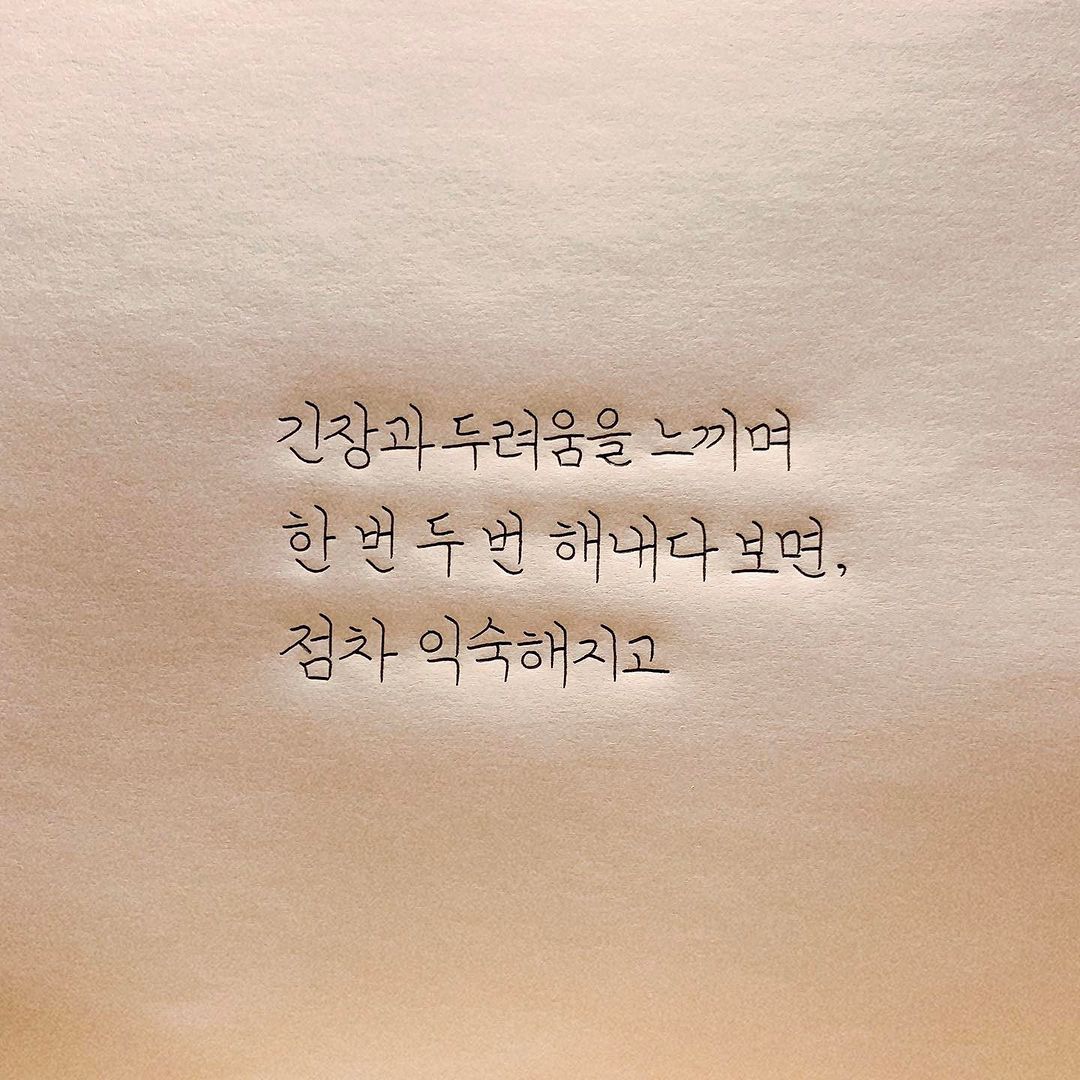 긴장과 두려움을 느끼며
한 번 두 번 해내다 보면,
점차 익숙해지고